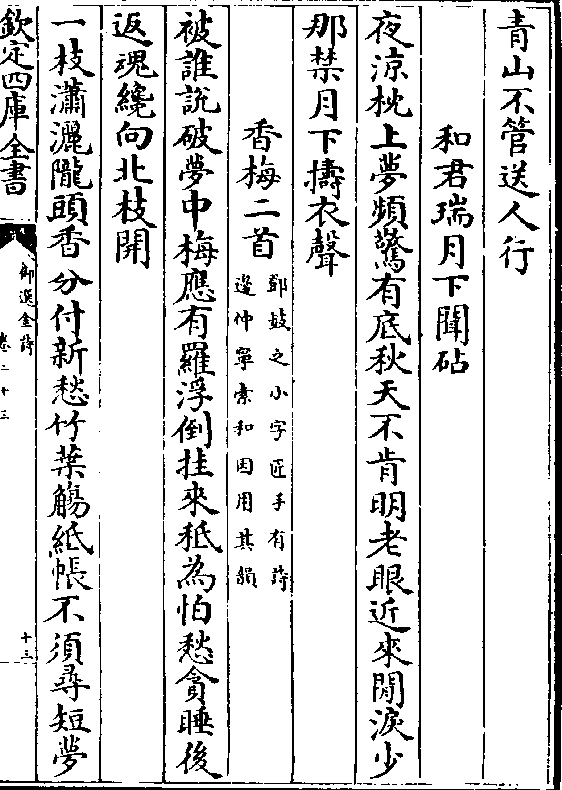 青山不管送人行
和君瑞月下聞砧
夜涼枕上夢頻驚有底秋天不肯明老眼近來閒淚少
那禁月下擣衣聲
香梅二首
鄆妓之小字匠手有詩
邊仲寧索和因用其韻
被誰說破夢中梅應有羅浮倒挂來秪為怕愁貪睡後
返魂纔向北枝開
一枝瀟灑隴頭香分付新愁竹葉觴紙帳不須尋短夢
欽定四庫全書
御選金詩
卷二十三
十三